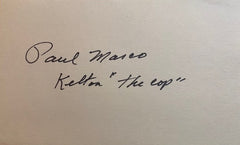 Paul Marco
Kelton "the cop"